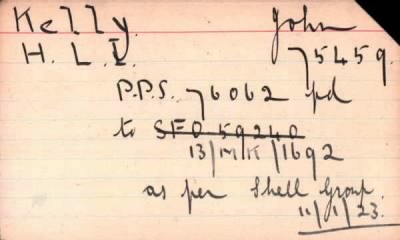 Kelly. John
H. L. I. 75459.
P.P.S. 76062 pd
to SFO 59240
13/MK/1692
as per Shell Group.
11/1/23.